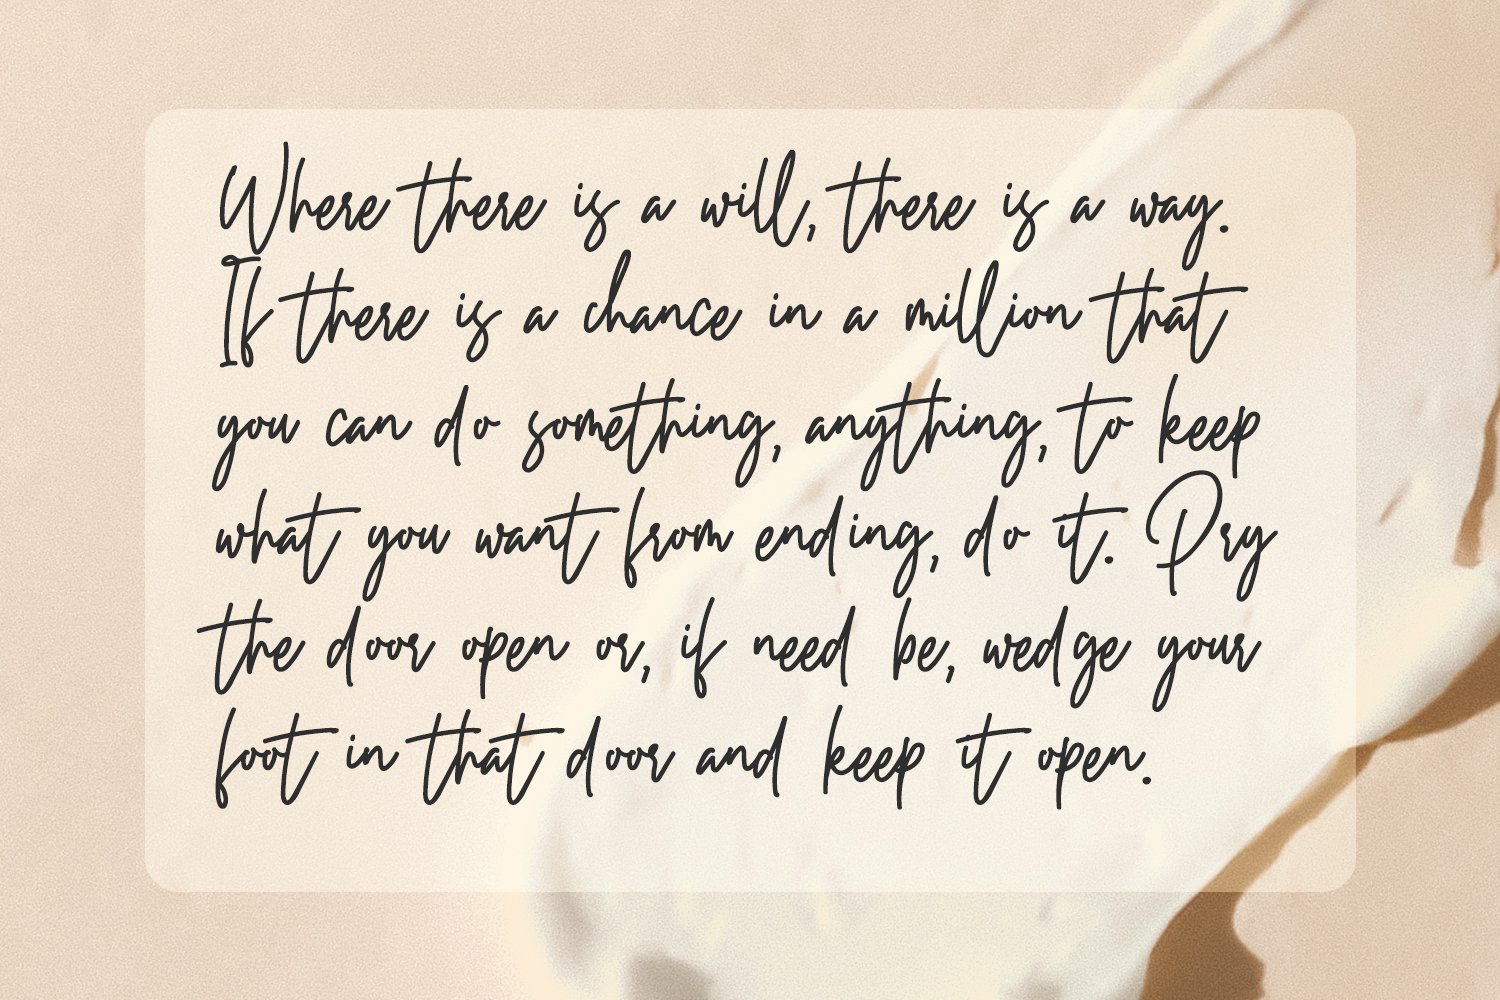 Where there is a will, there is a way.
If there is a chance in a million that
you can do something, anything, to keep
what you want from ending, do it. Pry
the door open or, if need be, wedge your
foot in that door and keep it open.